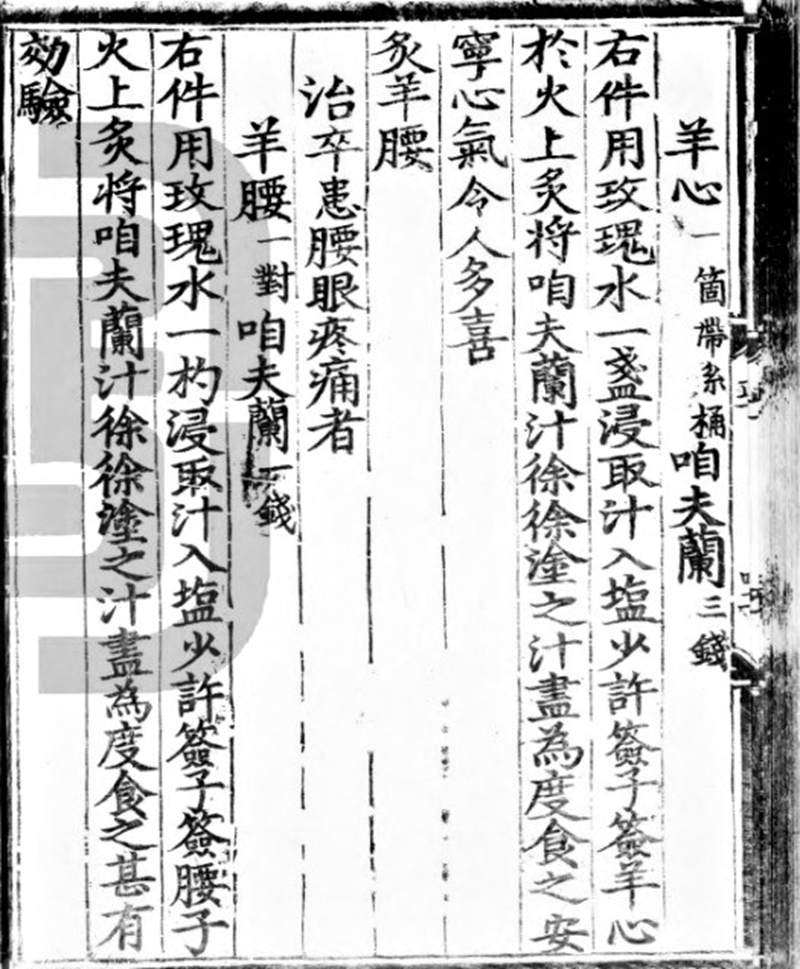 羊心一箇帶系桶咱夫蘭三錢
右件用玫瑰水一盞浸取汁入塩少許簽子簽羊心
於火上炙将咱夫蘭汁徐徐塗之汁盡為度食之安
寧心氣令人多喜
炙羊腰
治卒患腰眼疼痛者
羊腰一對咱夫蘭一錢
右件用玫瑰水一杓浸取汁入塩少許簽子簽腰子
火上炙将咱夫蘭汁徐徐塗之汁盡為度食之甚有
効驗